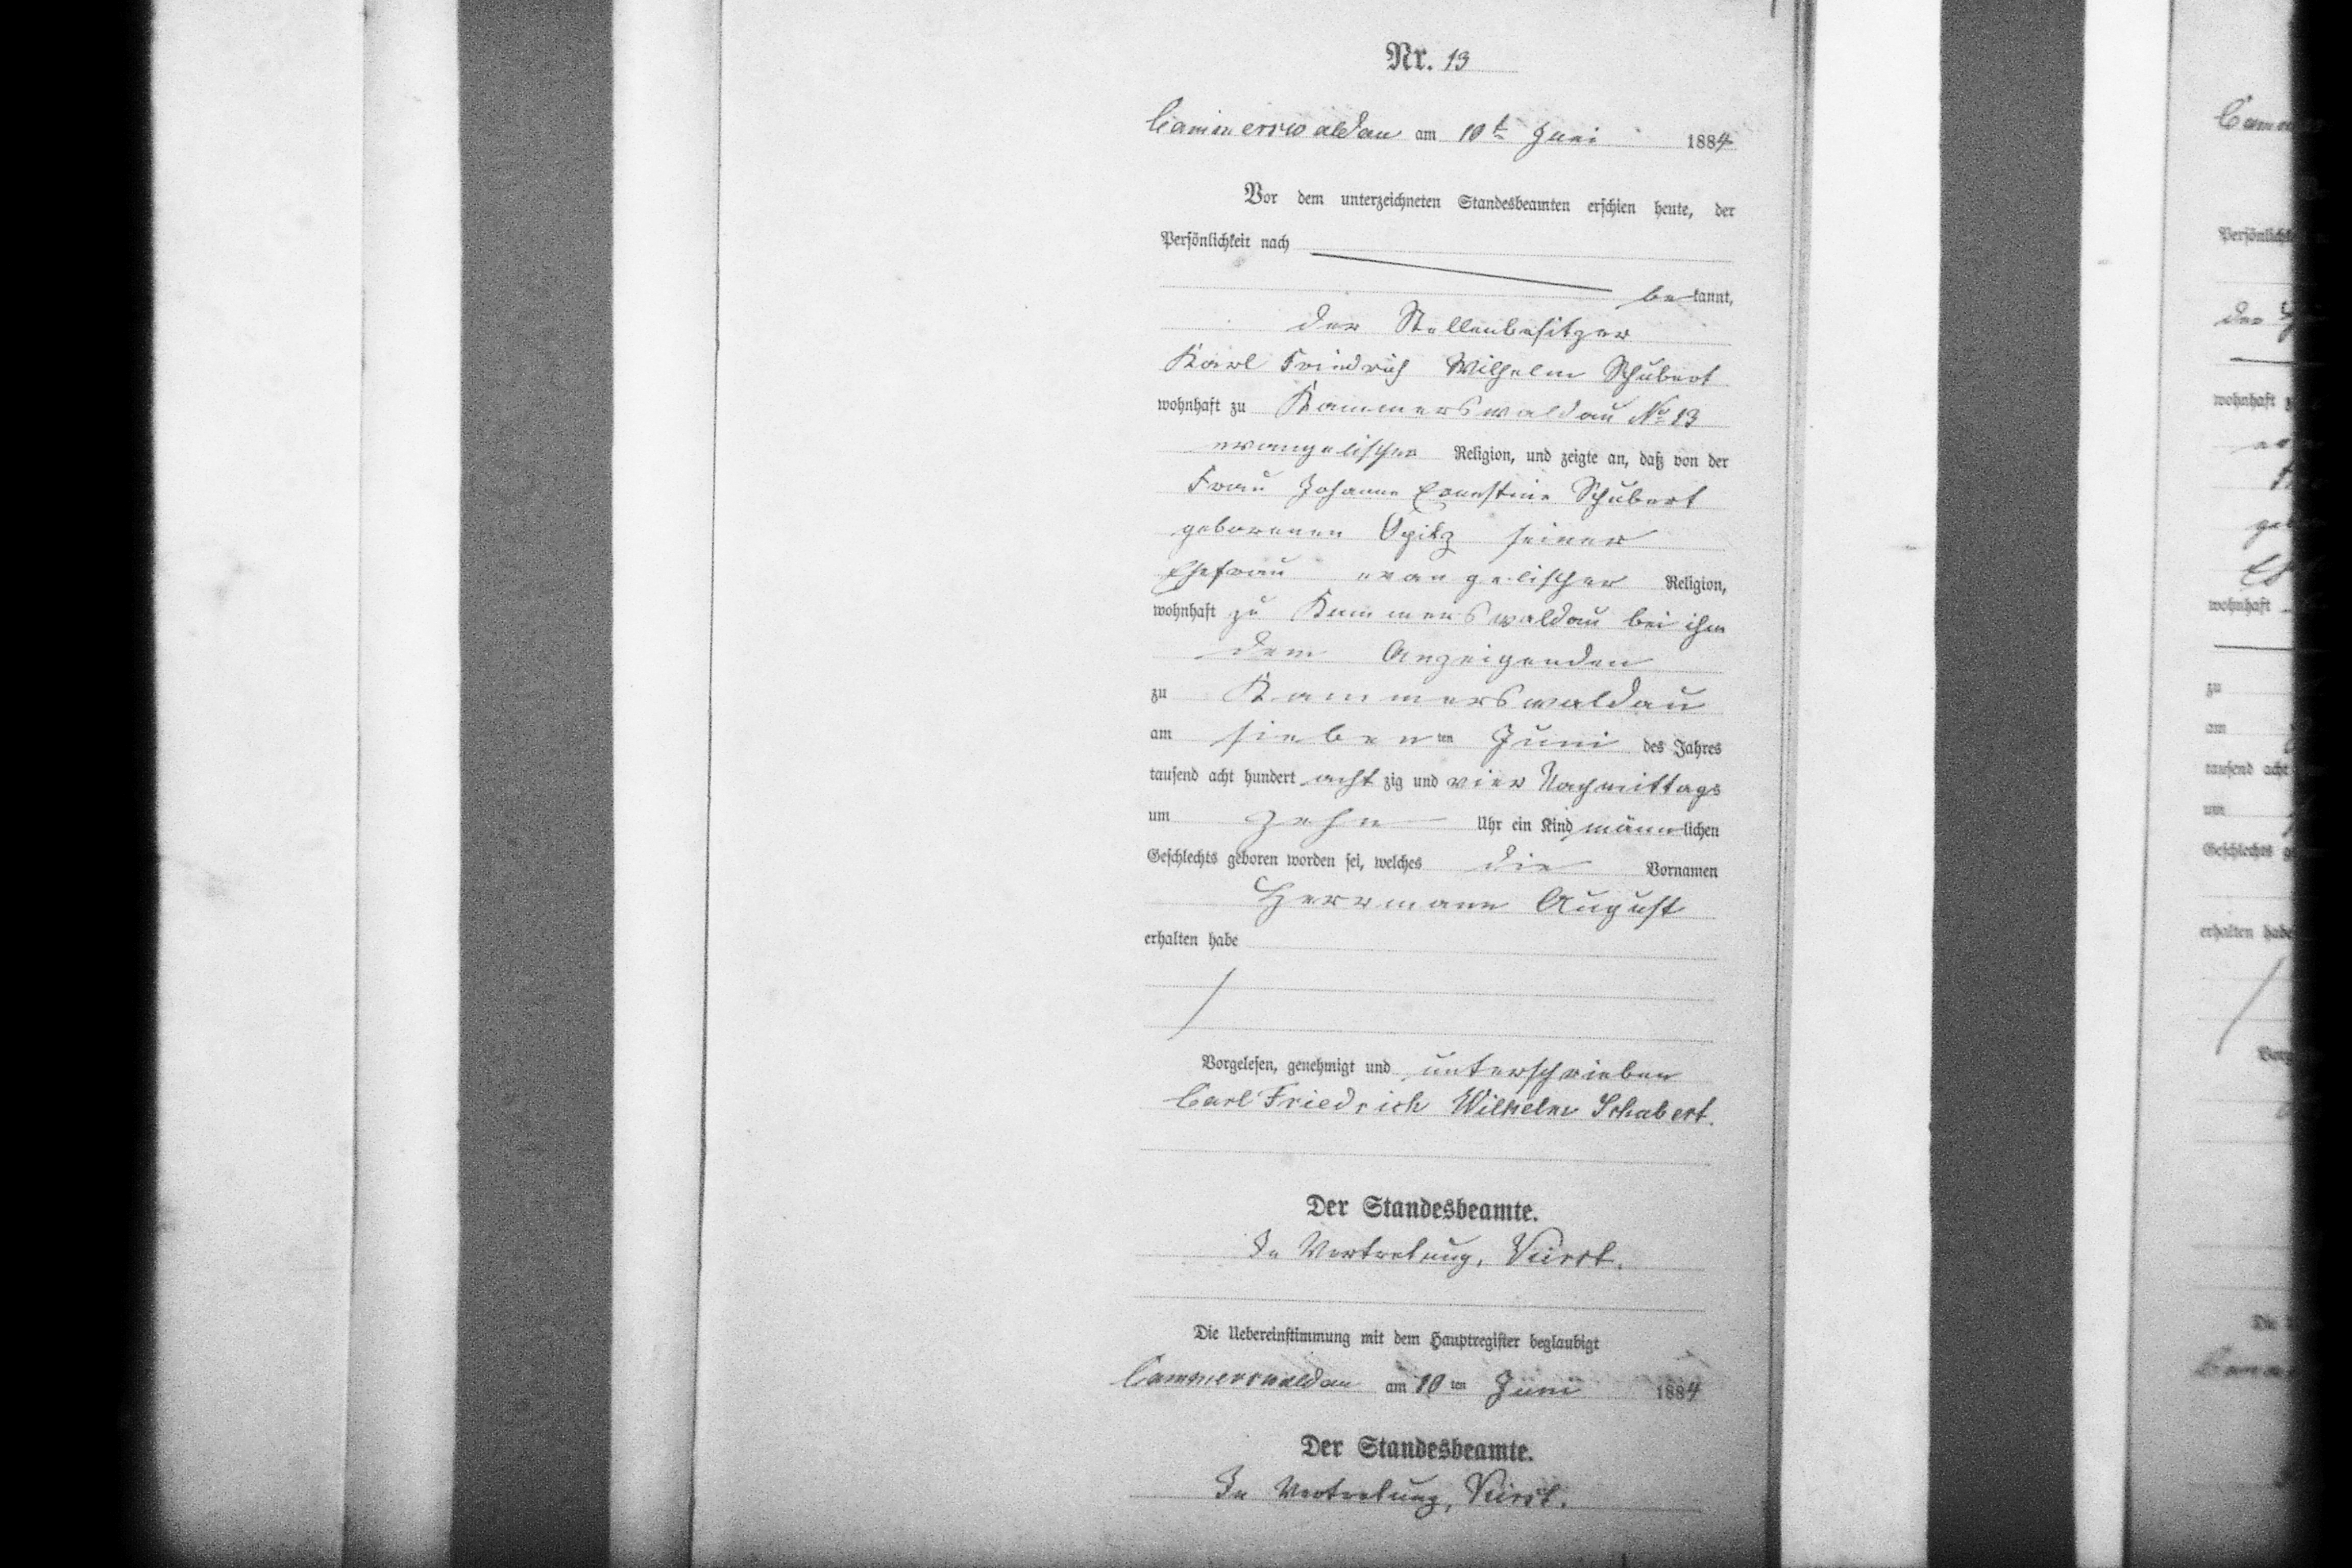 Nr. 13
Cammerswaldau am 10t Juni 1884
Vor dem unterzeichneten Standesbeamten erschien heute, der
Persönlichkeit nach
bekannt,
der Stellenbesitzer
Karl Friedrich Wilhelm Schubert
wohnhaft zu Kammerswaldau No 13
evangelischer Religion, und zeigte an, daß von der
Frau Johanne Ernestine Schubert
geborenen Opitz seiner
Ehefrau evangelischer Religion,
wohnhaft zu Kammerswaldau bei ihm
dem Anzeigenden
zu Kammerswaldau
am siebenten Juni des Jahres
tausend acht hundert achtzig und vier Nachmittags
um zehn Uhr ein Kind männlichen
Geschlechts geboren worden sei, welches die Vornamen
Herrmann August
erhalten habe
Vorgelesen, genehmigt und unterschrieben
Carl Friedrich Wilhelm Schubert.
Der Standesbeamte.
In Vertretung,
Die Uebereinstimmung mit dem Hauptregister beglaubigt
Cammerswaldau am 10ten Juni 1884
Der Standesbeamte.
In Vertretung,
wohnhaft
zu
am
tausend acht
um
erhalten habe